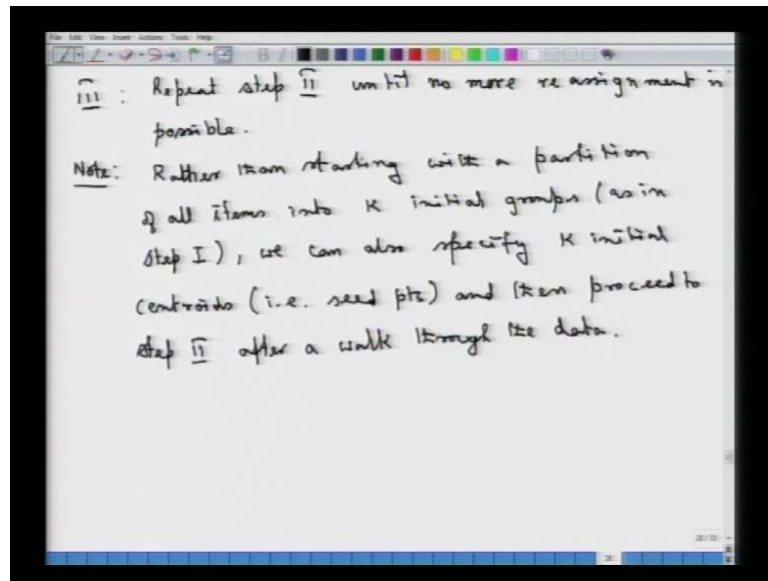 File Edit View Insert Actions Tools Help
III : Repeat step II until no more reassignment is
possible.
Note: Rather than starting with a partition
of all items into K initial groups (as in
step I), we can also specify K initial
centroids (i.e. seed pts) and then proceed to
step II after a walk through the data.